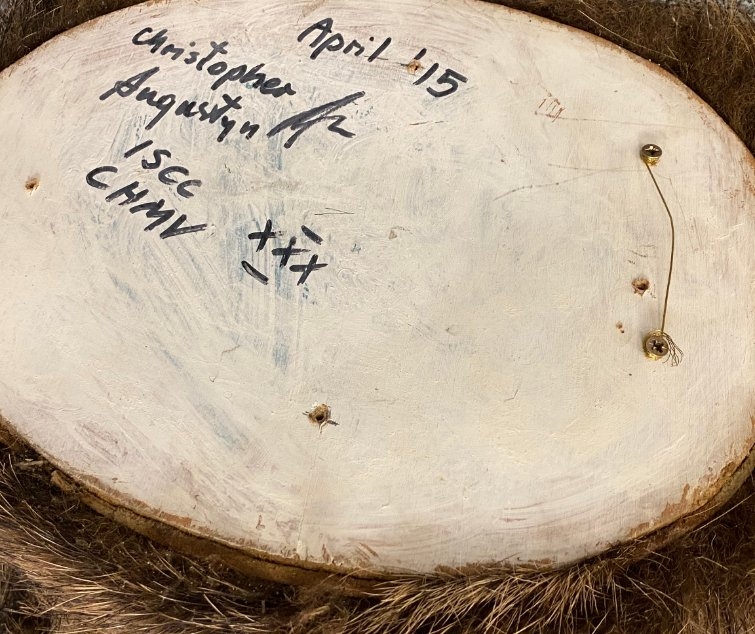 April '15
Christopher
Augustyn
ISCC
CHMV
XXX